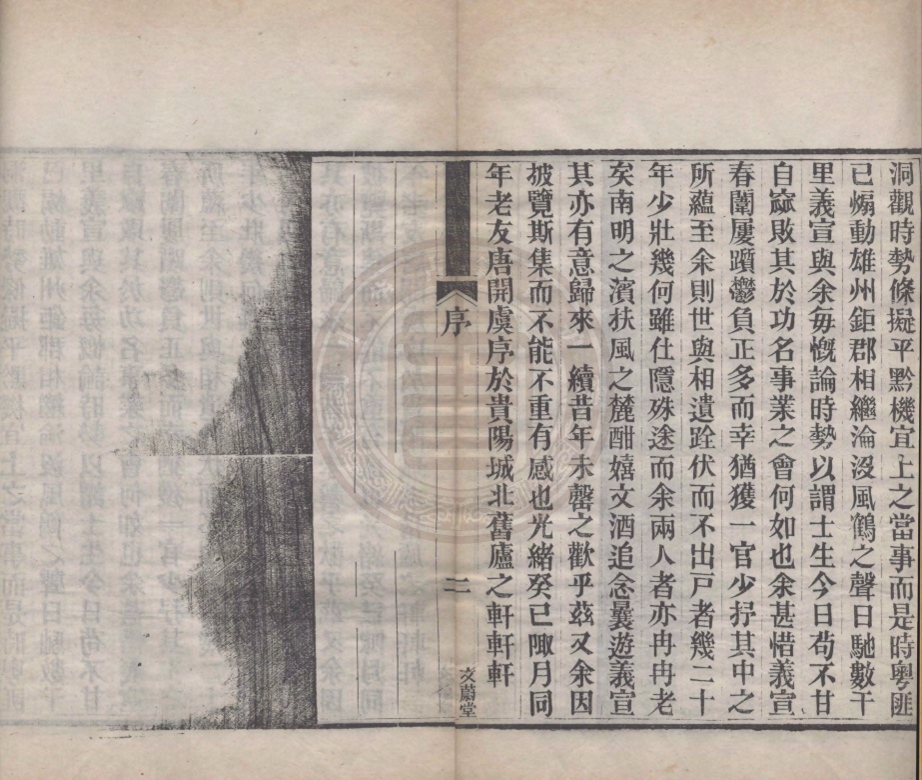 洞觀時勢條擬平黔機宜上之當事而是時粵匪
已煽動雄州鉅郡相繼淪沒風鶴之聲日馳數千
里義宣與余每慨論時勢以謂士生今日苟不甘
自窳敗其於功名事業之會何如也余甚惜義宣
春闈屢躓鬱負正多而幸猶獲一官少抒其中之
所蘊至余則世與相遺跧伏而不出戸者幾二十
年少壯幾何雖仕隱殊途而余兩人者亦冉冉老
矣南明之濱扶風之麓酣嬉文酒追念曩遊義宣
其亦有意歸來一續昔年未罄之歡乎茲又余因
披覽斯集而不能不重有感也光緒癸巳陬月同
年老友唐開虞序於貴陽城北舊廬之軒軒軒
序
二
文蔚堂